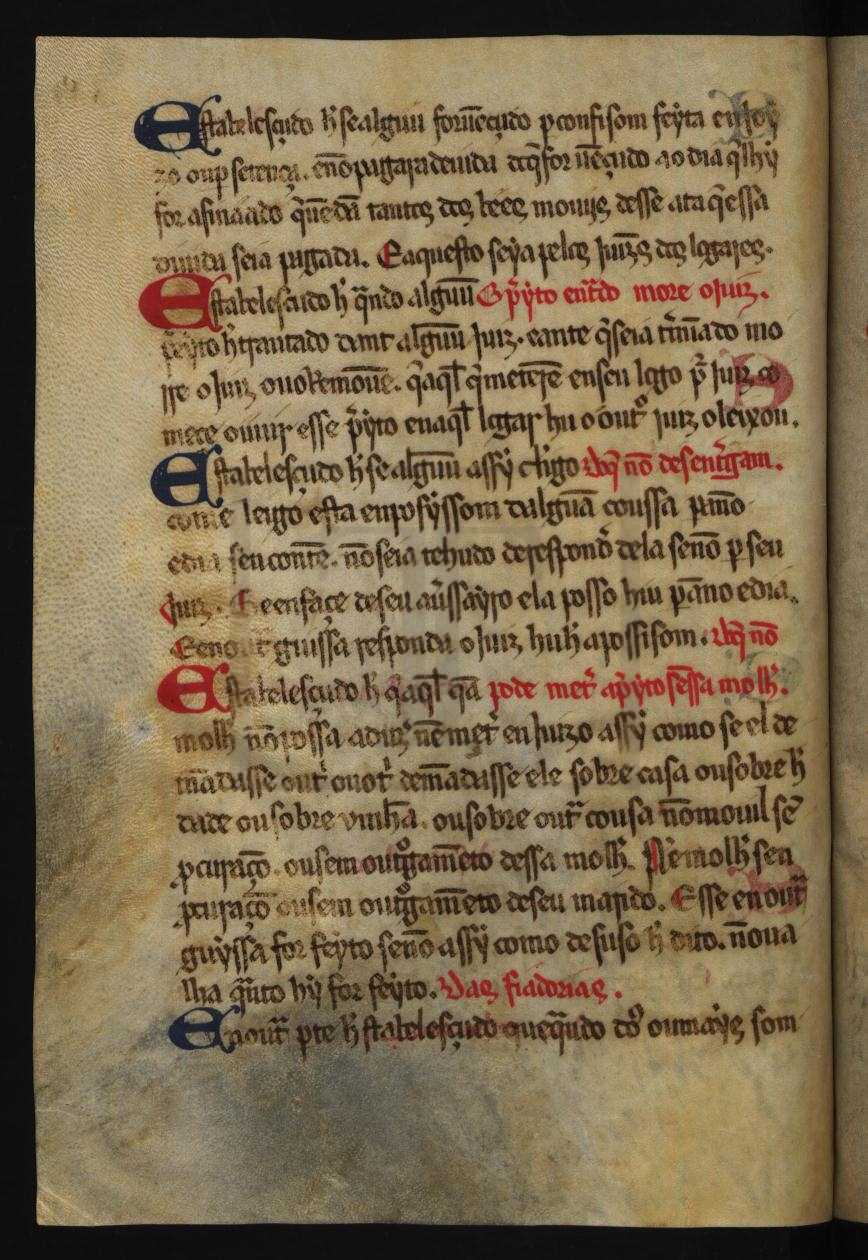 Estabelesçudo h̃ se alguũ for uẽcudo p confisom feyta en
zo ou p sentença. e nõ pagar a deuida aoq̃ for uẽçudo ao dia q̃ lhỹ
for asinaado q̃ uẽdã tantos dos bẽes mouijs desse ata q̃ essa
diuida seia pagada. E aquesto seya pelos Juizes dos logares.
Estabelesçudo h̃ q̃ndo alguũ O p̃yto ent̃do more o Juiz.
p̃eyto h̃ trautado dant alguũ Juiz. e ante q̃ seia t̃mĩado mo
rre o Juiz ou o Remouẽ. q̃ aq̃l q̃ meterẽ en seu logo p̃ Juiz co
mece ouuir esse p̃yto en aq̃l logar hu o out̃ Juiz o leixou.
Estabelesçudo h̃ se alguũ assy cligo Do q̃ nõ
come leigo esta en posyssom dalguã coussa p ãno
e dia seu conte. nõ seia tehudo de respond̃ dela senõ p seu
Juiz. E en façe de seu au̾ssayro ela posso hiu p ãno e dia.
E en out guissa responda o Juiz hu h̃ a possisom. Do q̃ nõ
Estabelesçudo h̃ q̃ aq̃l q̃ã pode met̃ a p̃yto sẽ ssa molh̃.
molh̃ nõ possa aduz̃ nẽ met̃ en Juizo assy como se el de
mãdasse out̃ ou ot̃ demãdasse ele sobre casa ou sobre h̃
dade ou sobre uinh̃a. ou sobre out̃ cousa nõ mouil sẽ
pcuraçõ. ou sem outorgamẽto dessa molh̃. Nẽ molh̃ sen
pcuraçõ ou sem outorgamẽto de seu marido. E sse en out̃
guyssa for feyto senõ assy como de suso h̃ dito. nõ ua
lha quãto hy for feyto. Das fiadorias.
En out̃ pte h̃ stabelesçudo que quãdo som